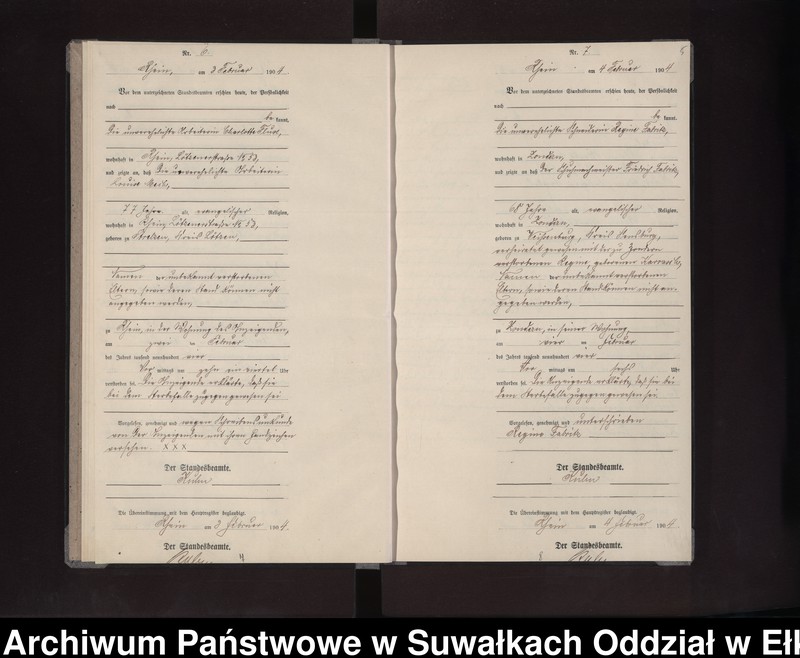 Nr. 6
Rhein, am 3 Februar 1904.
Vor dem unterzeichneten Standesbeamten erschien heute, der Persönlichkeit
nach
be kannt,
die unverehelichte Arbeiterin Charlotte
wohnhaft in Rhein, Lötzenerstraße № 53,
und zeigte an, daß die unverehelichte Arbeiterin
Louise
77 Jahre alt, evangelischer Religion,
wohnhaft in Rhein, Lötzenerstraße № 53,
geboren zu Kreis Lötzen,
Namen der unbekannt verstorbenen
Eltern, sowie deren Stand können nicht
angegeben werden,
zu Rhein, in der Wohnung des Anzeigenden,
am zwei ten Februar
des Jahres tausend neunhundert vier
Vor mittags um zehn ein viertel Uhr
verstorben sei. Die Anzeigende erklärte, daß sie
bei dem Sterbefalle zugegen gewesen sei
Vorgelesen, genehmigt und wegen Schreibensunkunde
von der Anzeigenden mit ihrem Handzeichen
versehen. X X X
Der Standesbeamte.
Die Übereinstimmung mit dem Hauptregister beglaubigt.
Rhein am 3 Februar 1904.
Der Standesbeamte.
Nr. 7
Rhein am 4 Februar 1904
Vor dem unterzeichneten Standesbeamten erschien heute, der Persönlichkeit
nach
be kannt,
die unverehelichte Schneiderin Regine Fabrik,
wohnhaft in Zondern,
und zeigte an, daß der Schuhmachermeister Friedrich Fabrik,
68 Jahre alt, evangelischer Religion,
wohnhaft in Zondern,
geboren zu Kreis
verheiratet gewesen mit der zu Zondern
verstorbenen Regine, geborenen
Namen der unbekannt verstorbenen
Eltern, sowie deren Stand können nicht an-
gegeben werden,
zu Zondern, in seiner Wohnung
am vier ten Februar
des Jahres tausend neunhundert vier
Vor mittags um sechs Uhr
verstorben sei. Die Anzeigende erklärte, daß sie bei
dem Sterbefalle zugegen gewesen sei.
Vorgelesen, genehmigt und unterschrieben
Regine Fabrik
Der Standesbeamte.
Die Übereinstimmung mit dem Hauptregister beglaubigt.
Rhein am 4 Februar 1904
Der Standesbeamte.
Archiwum Państwowe w Suwałkach Oddział w Ełk